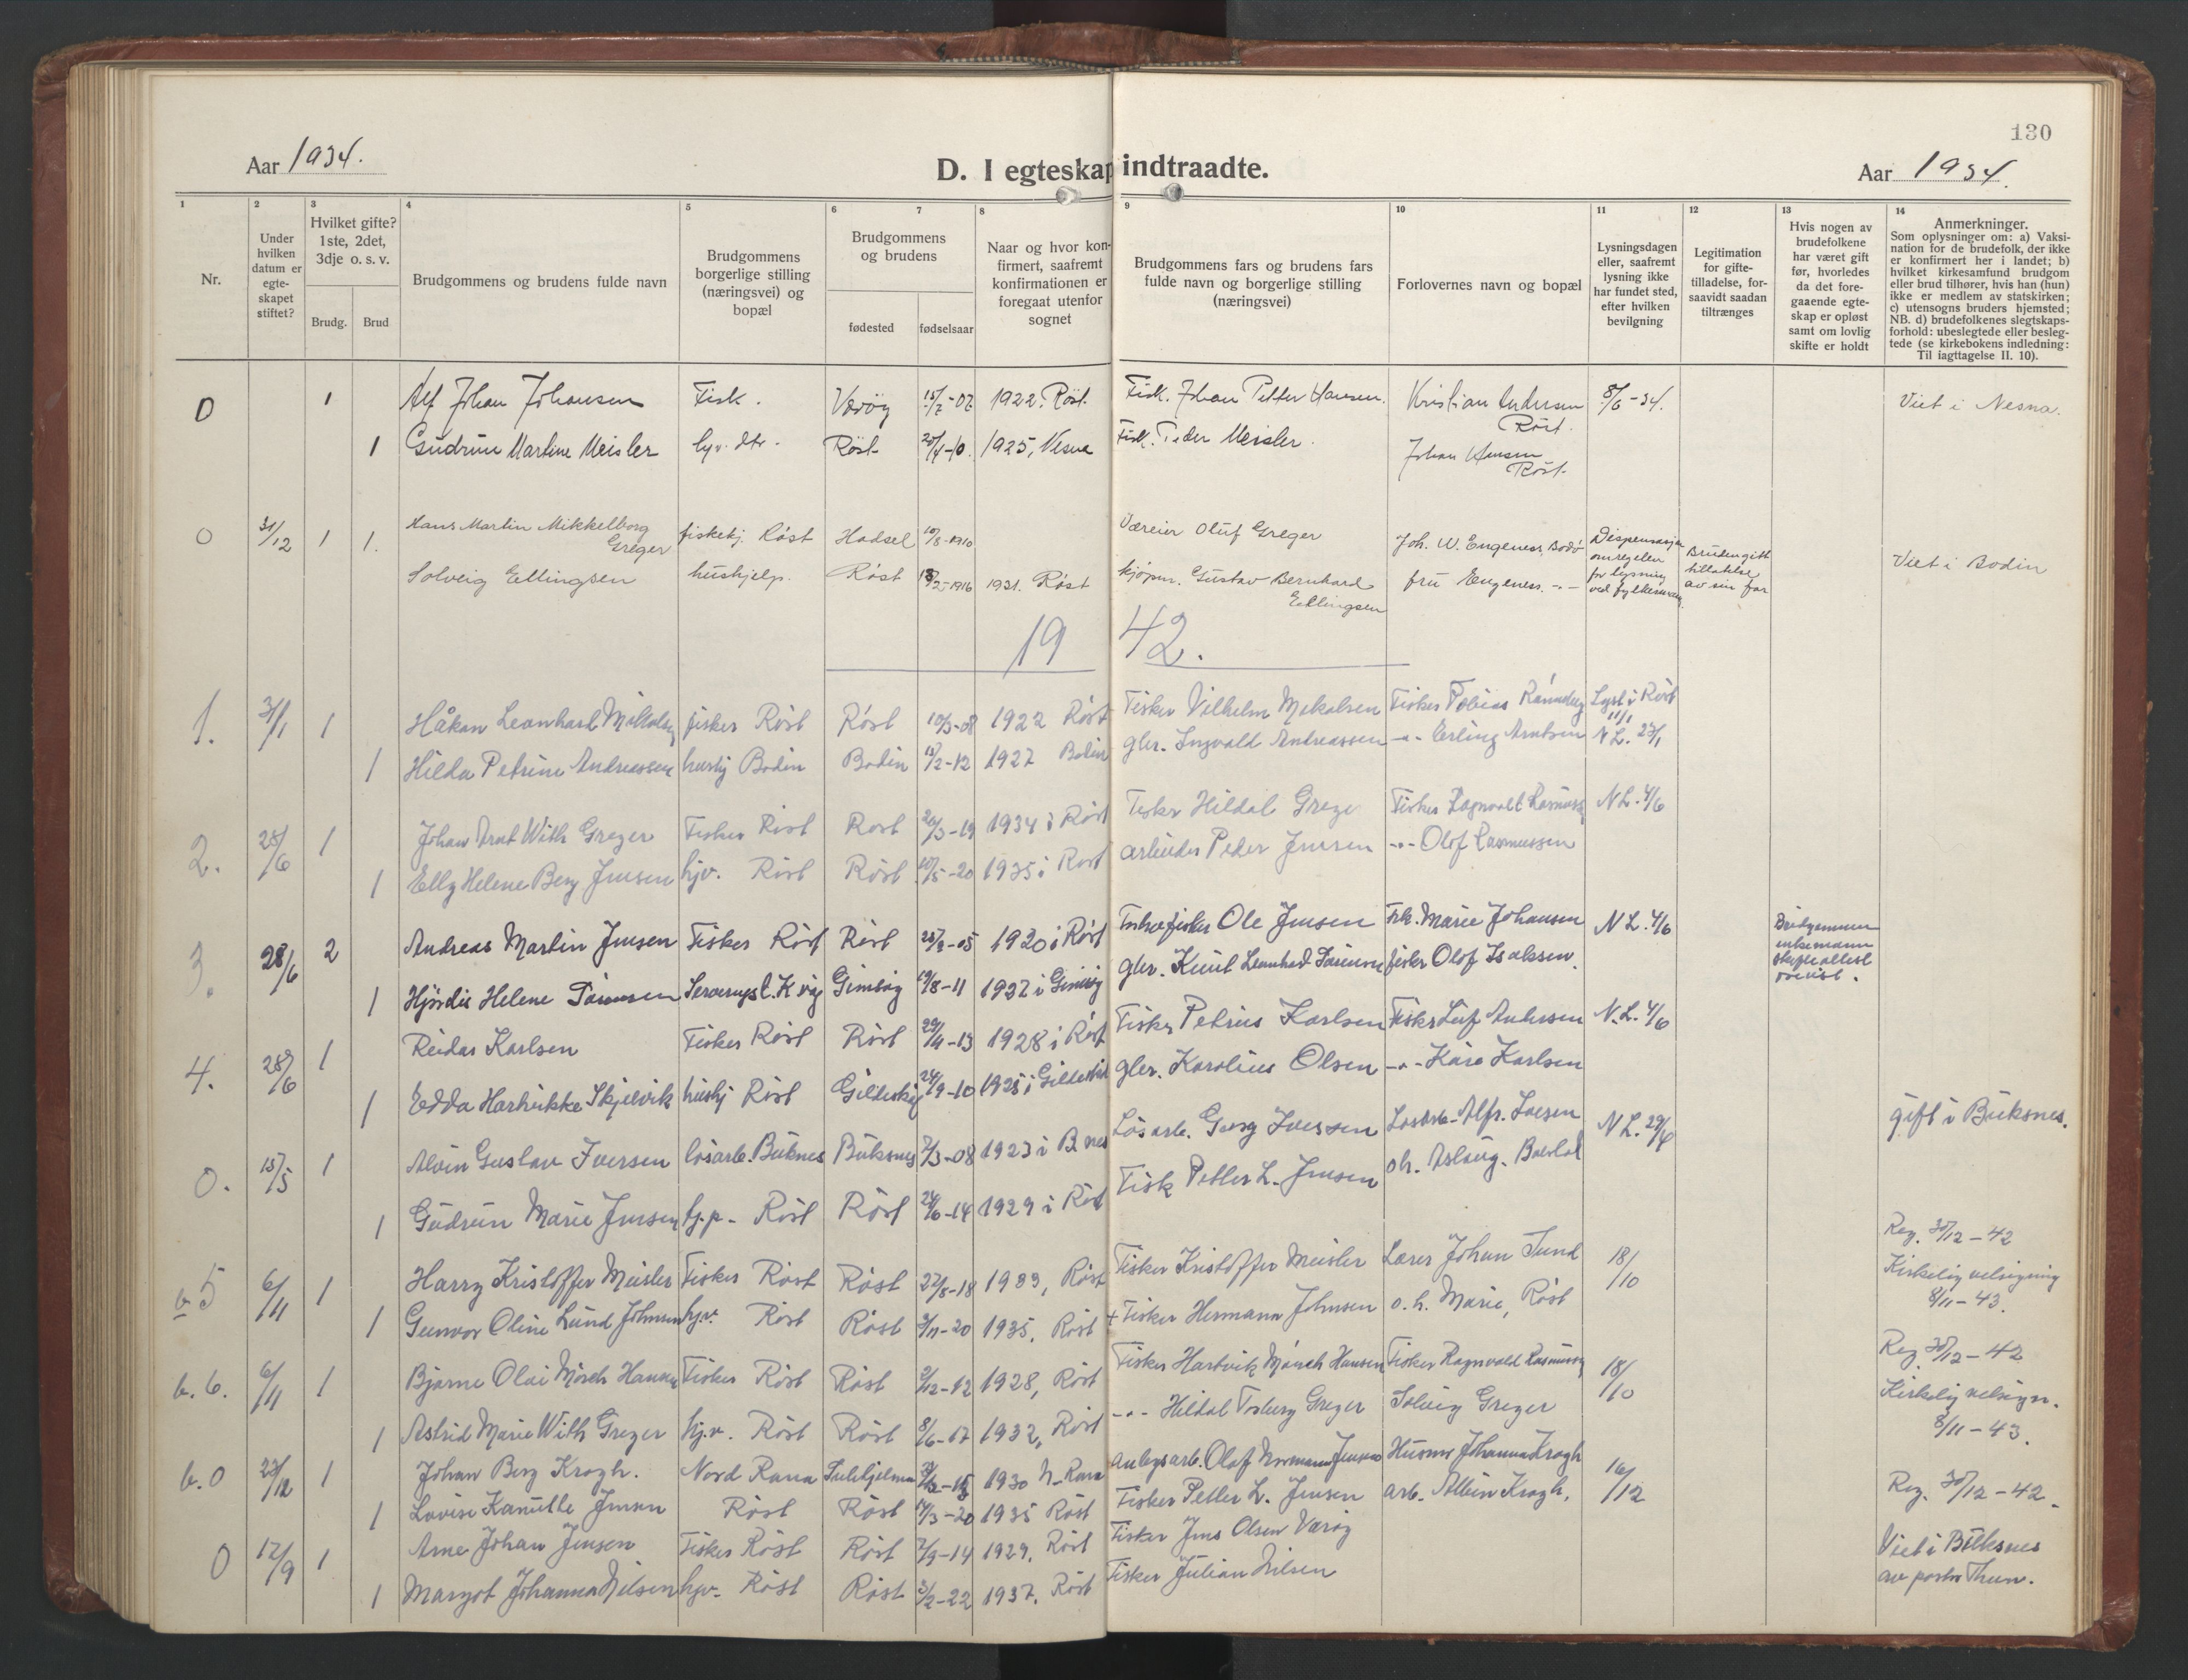 130
Aar 1934.
D. I egteskap indtraadte.
Aar 1934.
1 2 3 4 5 6 7 8 9 10 11 12 13 14
Nr.
Under hvilken datum er egte-skapet stiftet?
Hvilket gifte?
1ste, 2det,
3dje o. s. v.
Brudg. Brud
Brudgommens og brudens fulde navn
Brudgommens
borgerlige stilling
(næringsvei) og
bopæl
Brudgommens
og brudens
fødested fødselsaar
Naar og hvor kon-
firmert, saafremt
konfirmationen er
foregaat utenfor
sognet
Brudgommens fars og brudens fars
fulde navn og borgerlige stilling
(næringsvei)
Forlovernes navn og bopæl
Lysningsdagen
eller, saafremt
lysning ikke
har fundet sted,
efter hvilken
bevilgning
Legitimation
for gifte-
tilladelse, for-
saavidt saadan
tiltrænges
Hvis nogen av
brudefolkene
har været gift
før, hvorledes
da det fore-
gaaende egte-
skap er opløst
samt om lovlig
skifte er holdt
Anmerkninger.
Som oplysninger om: a) Vaksi-
nation for de brudefolk, der ikke
er konfirmert her i landet; b)
hvilket kirkesamfund brudgom
eller brud tilhører, hvis han (hun)
ikke er medlem av statskirken;
c) utensogns bruders hjemsted;
NB. d) brudefolkenes slegtskaps-
forhold: ubeslegtede eller besleg-
tede (se kirkebokens indledning:
Til iagttagelse II. 10).
0 1 Alf Johan Johansen Fisk. Værøy 15/7-07 1922. Røst. Fisk. Johan Petter Hansen. Kristian Andersen Røst. 8/6-34. Viet i Nesna.
1 Gudrun Martine Meisler hjv. dtr. Røst 20/4-10. 1925, Nesna Fisk. Peder Meisler. Johan Hansen Røst.
0 31/12 1 1. Hans Martin Mikkelborg Greger fiskekj. Røst Hadsel 10/8-1910 Væreier Oluf Greger Joh. W. Engeness, Bodø Viet i Bodin
Solveig Ellingsen hushjelp. Røst 13/2-1916 1931. Røst kjøpm. Gustav Bernhard Ellingsen fru Engeness. -"-
Bruden gitt
tillatelse
av sin far
19 42.
1. 31/1 1 Håkon Leonhard fisker Røst Røst 10/3-08 1922 Røst Fisker Vilhelm Mikalsen Fisker Tobias Lyst i Røst 11/1
1 Hilda Petrine Andreassen hushj Bodin Bodin 18/2-12 1927 Bodin gbr. Ingvald Andreassen -"- Erling Arntsen N L. 23/1
2. 28/6 1 Johan Arnt With Greger Fisker Røst Røst 20/3-19 1934 i Røst Fisker Hildal Greger Fisker Ragnvald N L. 4/6
1 Elly Helene Berg Jensen hjv. Røst Røst 10/5-20 1935 i Røst arbeider Peder Jensen -"- Olof Rasmussen
3. 28/6 2 Andreas Martin Jensen Fisker Røst Røst 1920 i Røst Ole Jensen Frk. Marie Johansen N L. 4/6
Brudgommen
enkemann
skifteattest
forevist.
1 Hjørdis Helene 19/8-11 1927 i gbr. Knut Leonhard fisker Olof Isaksen.
4. 28/6 1 Reidar Karlsen Fisker Røst Røst 1928 i Røst Fisker Petrus Karlsen Fisker Leif Andersen N. L. 4/6
1 Edda Skjelvik hushj Røst Gildeskål 24/9-10 1925 i Gildeskål gbr. Karolius Olsen -"- Kåre Karlsen
0. 15/5 1 Alvin Gustav Iversen løsarb. Buksnes Buksnes 7/3-08 1923 i B.nes Løsarb. Georg Iversen Løsarb. Alfr. Iversen N L. 29/4 gift i Buksnes.
1 Gudrun Marie Jensen tj.p. Røst Røst 24/6-14 1929 i Røst Fisk Petter L. Jensen o h. Aslaug.
b 5 6/11 1 Harry Kristoffer Meisler Fisker Røst Røst 27/8-18 1933, Røst Fisker Kristoffer Meisler Lærer Johan Sund 18/10
Reg. 30/12-42
Kirkelig velsigning
8/11-43.
1 Gunvor Oline Lund Johnsen hjv. Røst Røst 3/11-20 1935, Røst + Fisker Hermann Johnsen o. h. Marie, Røst
b. 6. 6/11 1 Bjarne Olai Mørch Hansen Fisker Røst Røst 2/12-12 1928, Røst Fisker Hartvik Mørch Hansen Fisker Ragnvald Rasmussen 18/10
Reg. 30/12-42
Kirkelig velsign.
8/11-43.
1 Astrid Marie With Greger hj.v. Røst Røst 8/6-17 1932, Røst -"- Hildal Greger Solveig Greger
b. 0 23/12 1 Johan Berg Krogh. Nord Rana Sulitjelma 1930 N-Rana anlegsarb. Olaf Johanna Krogh 16/12 Reg. 30/12-42.
1 Lovise Kamille Jensen Røst Røst 17/3-20 1935 Røst Fisker Petter L. Jensen arb. Krogh.
0 12/9 1 Arne Johan Jensen Fisker Røst Røst 7/9-14 1929, Røst Fisker Jens Olsen Værøy
Viet i Buksnes
av pastor Thun.
1 Margot Johanna Nilsen hjv. Røst Røst 3/2-22 1937. Røst Fisker Julian Nilsen